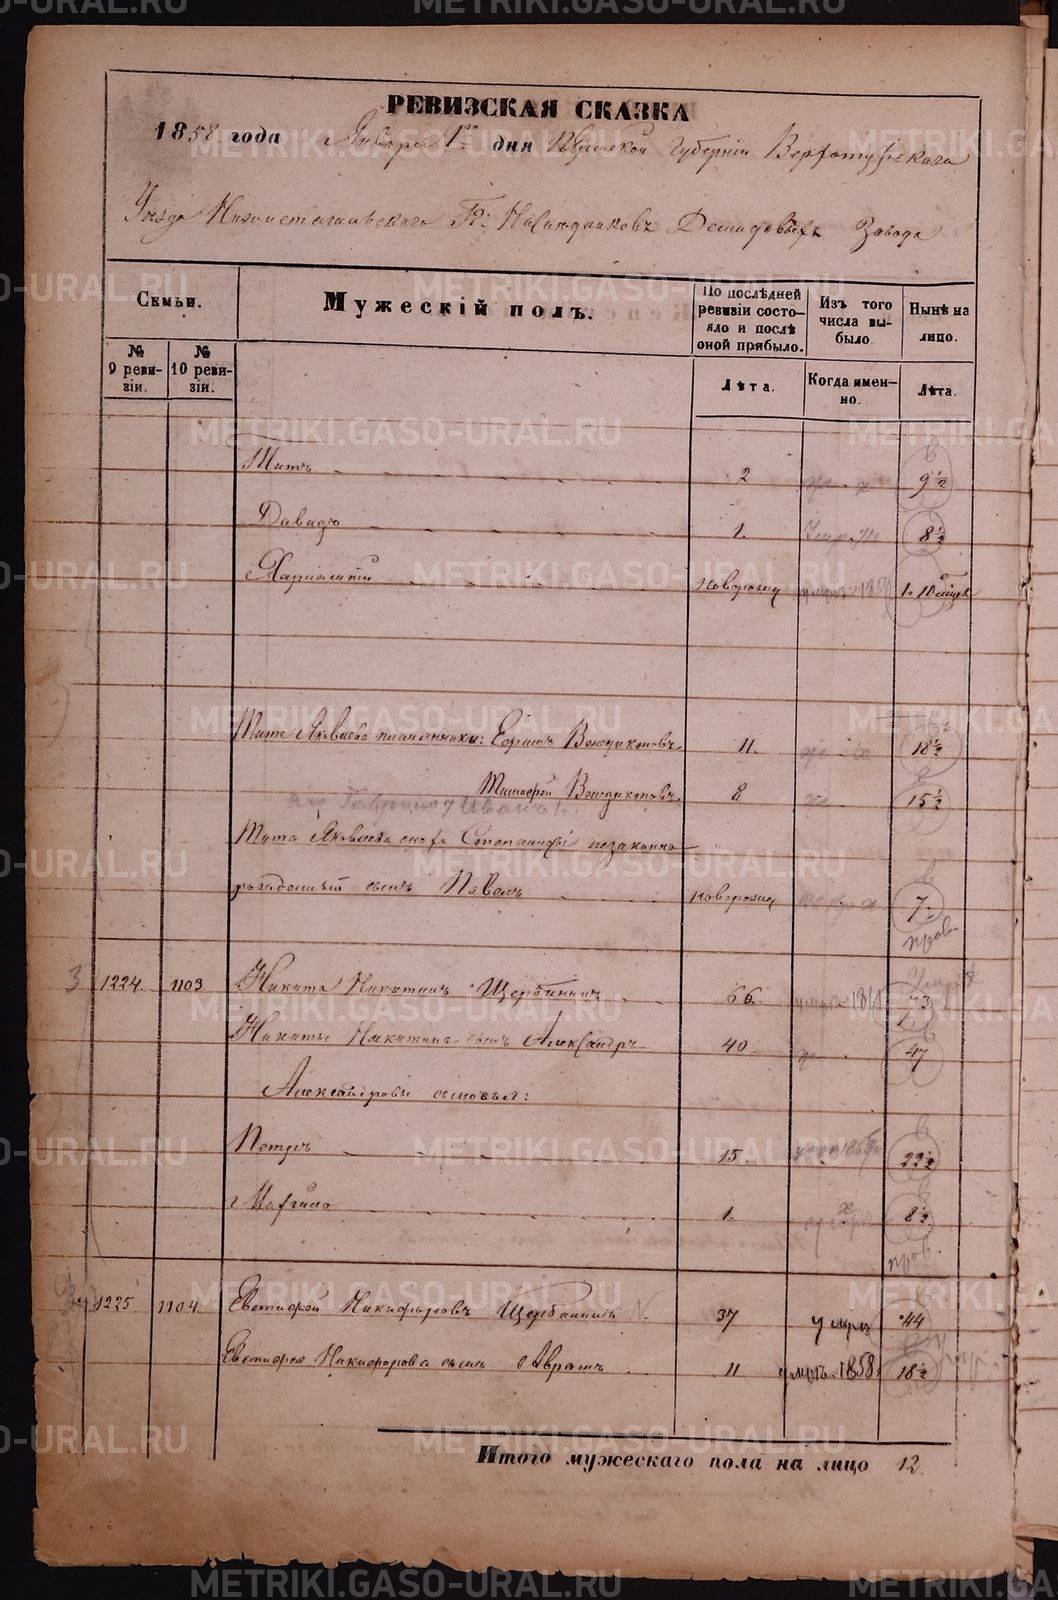 РЕВИЗСКАЯ СКАЗКА
1858 года Января 1го дня Пермской Губерніи Верхотурскаго
Уезда Нижнетагильскаго Гг. Наследниковъ Демидовыхъ Завода
Семьи.
Мужескій полъ.
По послѣдней ревизіи состояло и послѣ оной прибыло.
Изъ того числа выбыло.
Нынѣ на лицо.
№ 9 ревизіи.
№ 10 ревизіи.
Лѣта.
Когда именно.
Лѣта.
Титъ 2 9½
Давидъ 1. 8½
Харлампій новорожд 1. 10 мцъ
Тита Яковлева племянники: Ефимъ Венедиктовъ 11. 18½
Тимофей Венедиктовъ 8 15½
Гаврило Иванъ
Тита Яковлева снохи Степаниды незаконно
рожденный сынъ Павелъ новорожд 7.
пров
3 1224. 1103 Никита Никитинъ Щербининъ 66. 73
Никиты Никитина сынъ Александръ 40. 47
Александровы сыновья:
Петръ 15. 22½
Михайло 1. 8½
пров.
1225 1104 Евстифей Никифоровъ Щербининъ 37 умръ 44
Евстифея Никифорова сынъ Абрамъ 11 умръ 1858. 18½
Итого мужескаго пола на лицо 12.
METRIKI.GASO-URAL.RU